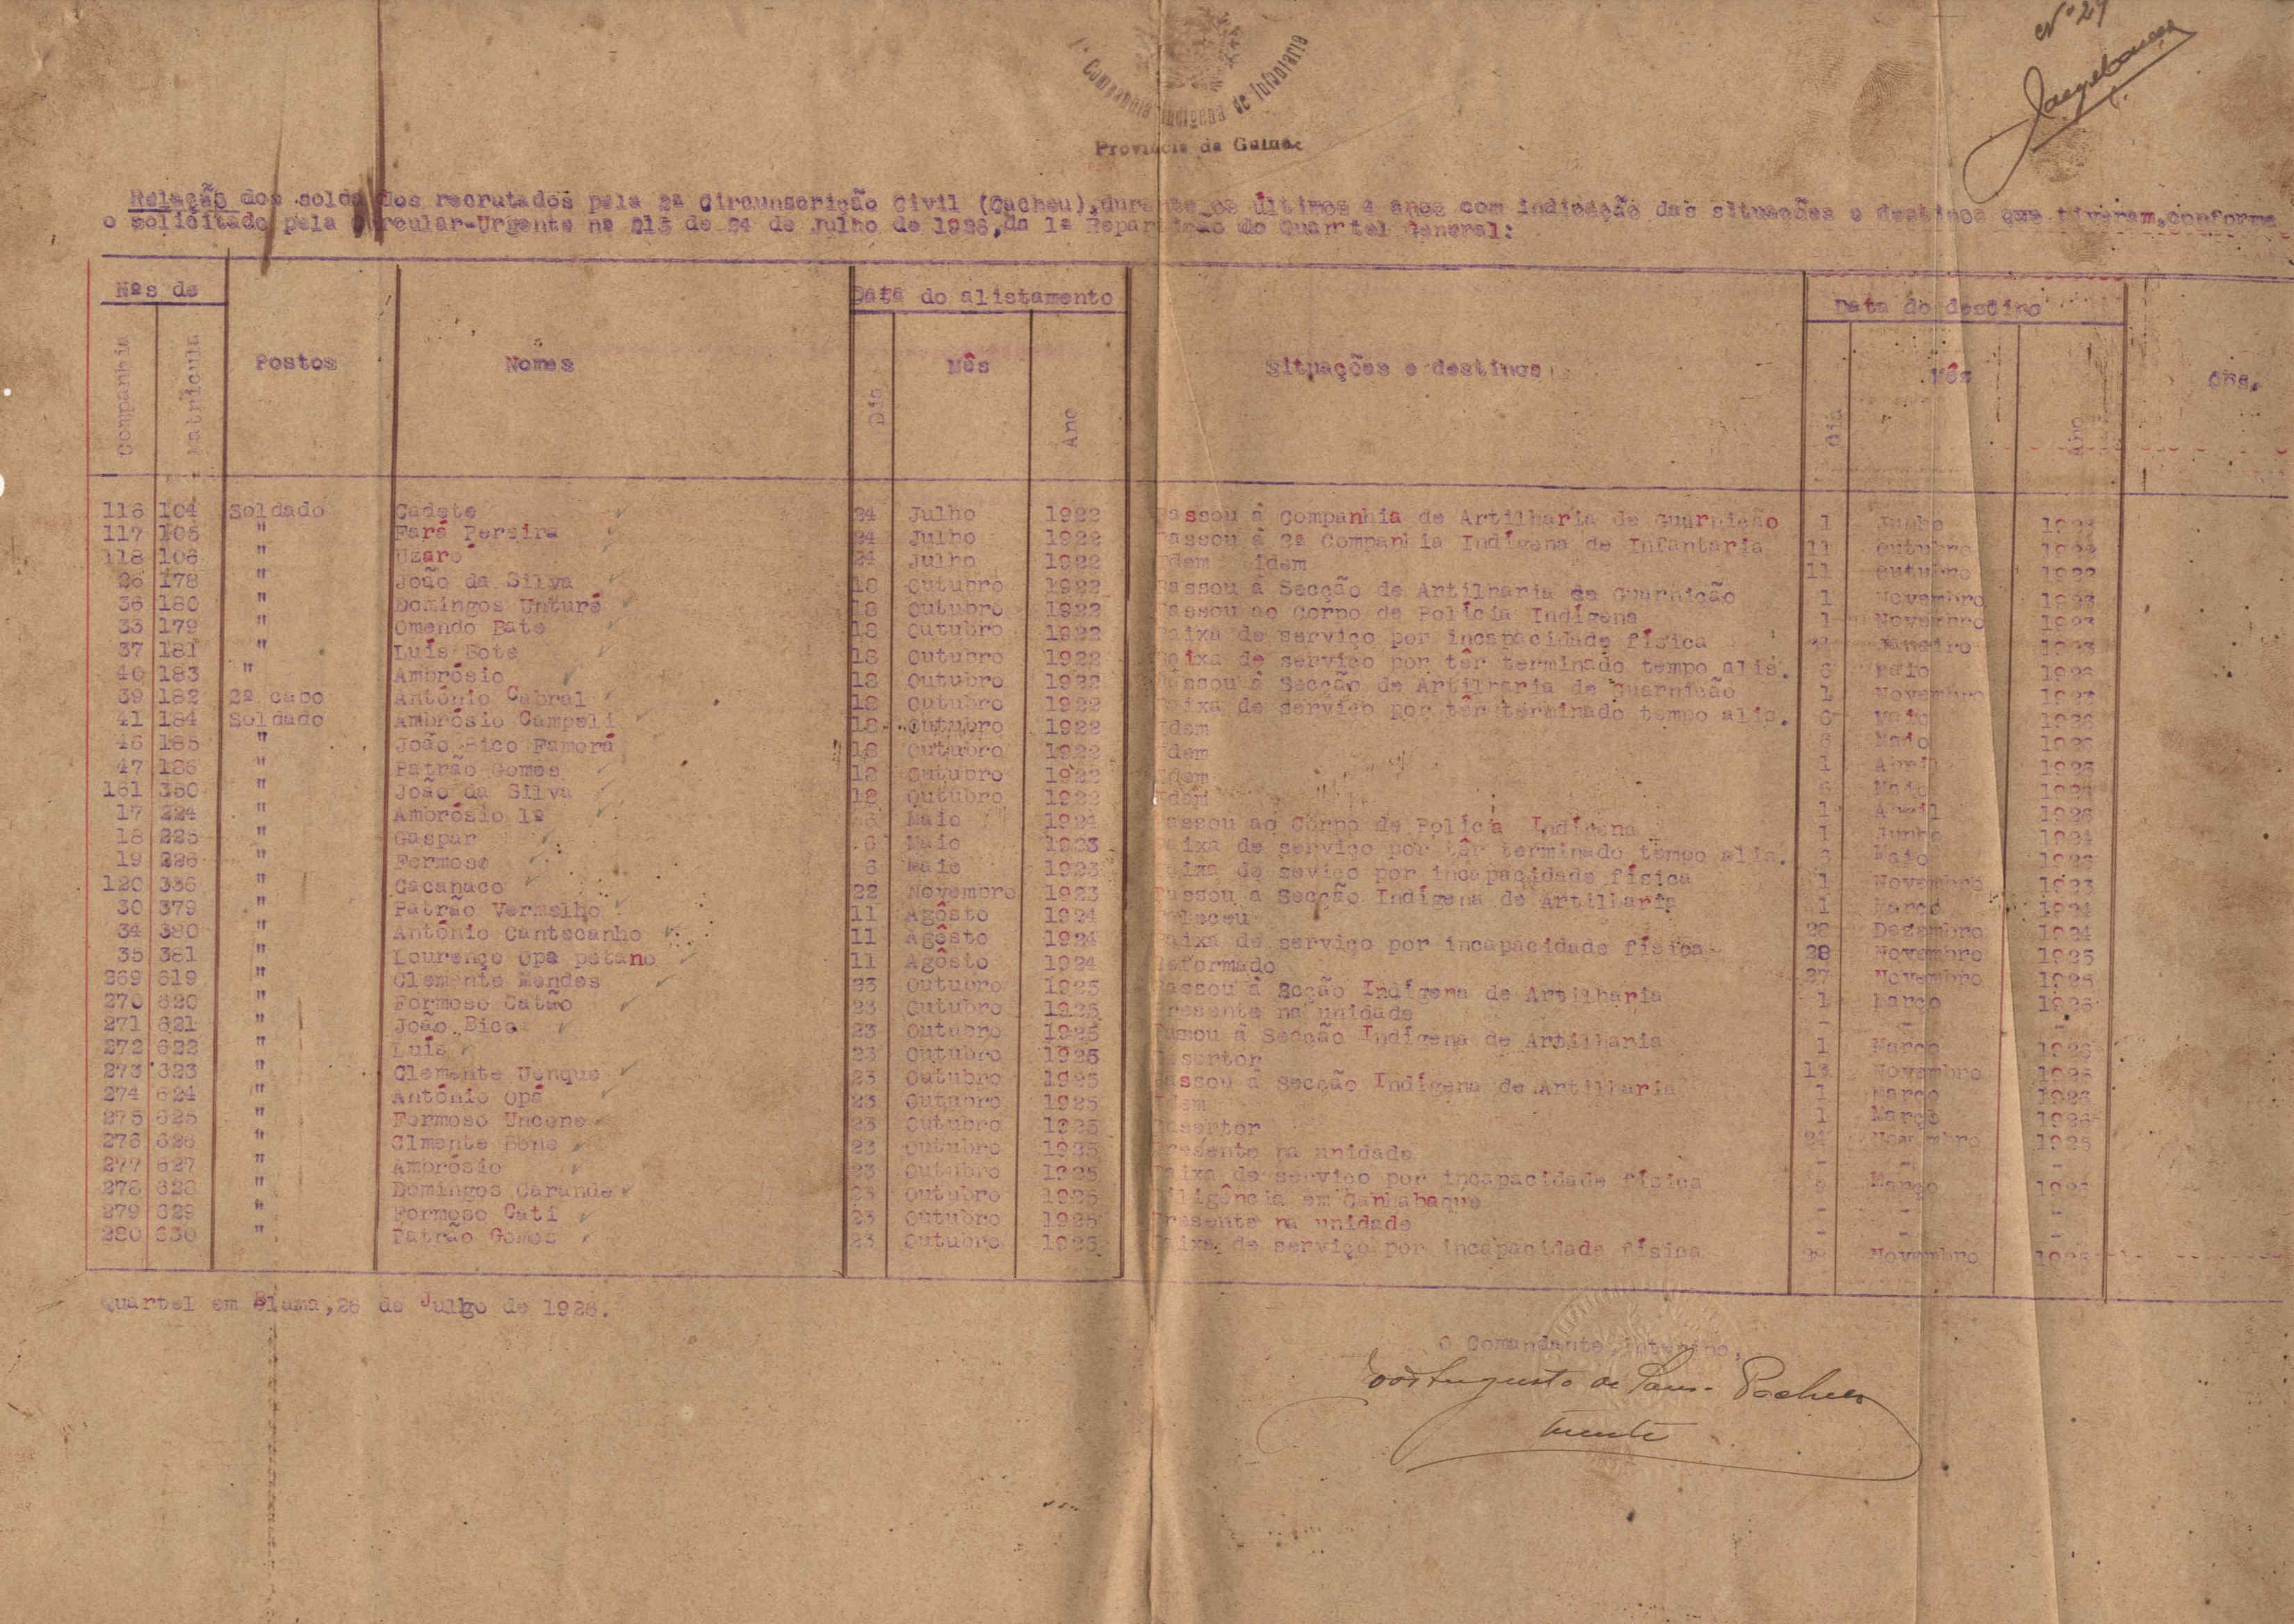 Nº 29
1ª Companhia Indígena de Infantaria
Província da Guiné
Relação dos soldados recrutados pela 2ª Circunscrição Civil (Cacheu), durante os últimos 4 anos com indicação das situações e destinos que tiveram, conforme
o solicitado pela Circular-Urgente nº 213 de 24 de Julho de 1926, da 1ª Repartição do Quartel General:
Nºs de Data do alistamento Data do destino
Companhia Matricula Postos Nomes Dia Mês Ano Situações e destinos Dia Mês Ano Obs.
116 104 Soldado Cadete 24 Julho 1922 Passou à Companhia de Artilharia de Guarnição 1 Junho 1923
117 105 " Fará Pereira 24 Julho 1922 Passou à 2ª Companhia Indígena de Infantaria 11 Outubro 1922
118 106 " Uzaré 24 Julho 1922 Idem idem 11 Outubro 1922
26 178 " João da Silva 18 Outubro 1922 Passou à Secção de Artilharia de Guarnição 1 Novembro 1923
36 180 " Domingos Unturé 18 Outubro 1922 Passou ao Corpo de Polícia Indígena 1 Novembro 1923
33 179 " Omendo Bate 18 Outubro 1922 Baixa de serviço por incapacidade física Janeiro 1923
37 181 " Luís Bote 18 Outubro 1922 Baixa de serviço por têr terminado tempo alis. 6 Maio 1926
40 183 " Ambrósio 18 Outubro 1922 Passou à Secção de Artilharia de Guarnição 1 Novembro 1923
39 182 2º cabo António Cabral 18 Outubro 1922 Baixa de serviço por têr terminado tempo alis. 6 Maio 1926
41 184 Soldado Ambrósio Campeli 18 Outubro 1922 Idem 6 Maio 1926
46 185 " João Bico Famorá 18 Outubro 1922 Idem 1 Abril 1926
47 186 " Patrão Gomes 18 Outubro 1922 Idem 6 Maio 1926
161 350 " João da Silva 18 Outubro 1922 Idem 1 Abril 1926
17 224 " Ambrósio 1º 6 Maio 1924 Passou ao Corpo de Polícia Indígena 1 Junho 1924
18 225 " Gaspar 6 Maio 1923 Baixa de serviço por têr terminado tempo alis. 6 Maio 1926
19 226 " Fermoso 6 Maio 1923 Baixa de seviço por incapacidade física 1 Novembro 1923
120 336 " Cacanaco 22 Novembro 1923 Passou à Secção Indígena de Artilharia 1 Março 1924
30 379 " Patrão Vermelho 11 Agôsto 1924 Faleceu 28 Dezembro 1924
34 380 " António Cantecanho 11 Agôsto 1924 Baixa de serviço por incapacidade física 28 Novembro 1925
35 381 " Lourenço Opa petano 11 Agôsto 1924 Reformado 27 Novembro 1925
269 619 " Clemente Mendes 23 Outubro 1925 Passou à Scção Indígena de Artilharia 1 Março 1926
270 620 " Formoso Catão 23 Outubro 1925 Presente na unidade - - -
271 621 " João Bico 23 Outubro 1925 Passou à Secção Indígena de Artilharia 1 Março 1926
272 622 " Luís 23 Outubro 1925 Desertor 13 Novembro 1925
273 623 " Clemente Uenque 23 Outubro 1925 Passou à Secção Indígena de Artilharia 1 Março 1926
274 624 " António Opá 23 Outubro 1925 Idem 1 Março 1926
275 625 " Formoso Uncene 23 Outubro 1925 Desertor 24 Novembro 1925
276 626 " Clmente Bene 23 Outubro 1925 Presente na unidade - - -
277 627 " Ambrósio 23 Outubro 1925 Baixa de serviço por incapacidade física Março 1926
278 628 " Domingos Carande 23 Outubro 1925 Diligência em Canhabaque - - -
279 629 " Formoso Cati 23 Outubro 1925 Presente na unidade - - -
280 630 " Patrão Gomes 23 Outubro 1925 Baixa de serviço por incapacidade física Novembro 1925
Quartel em Blama, 26 de Julho de 1926.
O Comandante interino,
Augusto de Pacheco
tenente